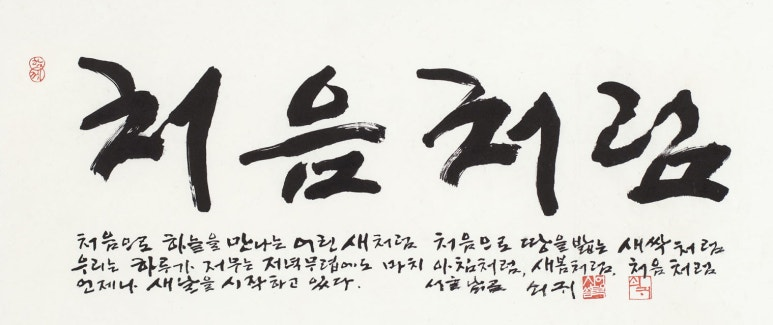 처음처럼
처음으로 하늘을 만나는 어린 새처럼 처음으로 땅을 밟는 새싹처럼
우리는 하루가 저무는 저녁무렵에도 마치 아침처럼, 새봄처럼, 처음처럼
언제나 새날을 시작하고 있다. 쇠귀